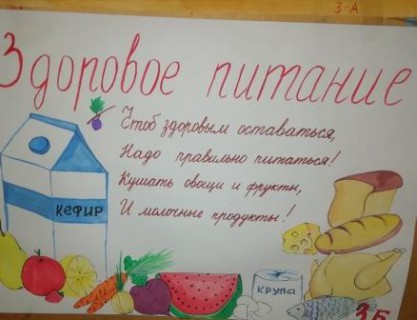 3-А
Здоровое питание
Чтоб здоровым оставаться,
Надо правильно питаться!
Кушать овощи и фрукты,
И молочные продукты!
КЕФИР
КРУПА
3Б